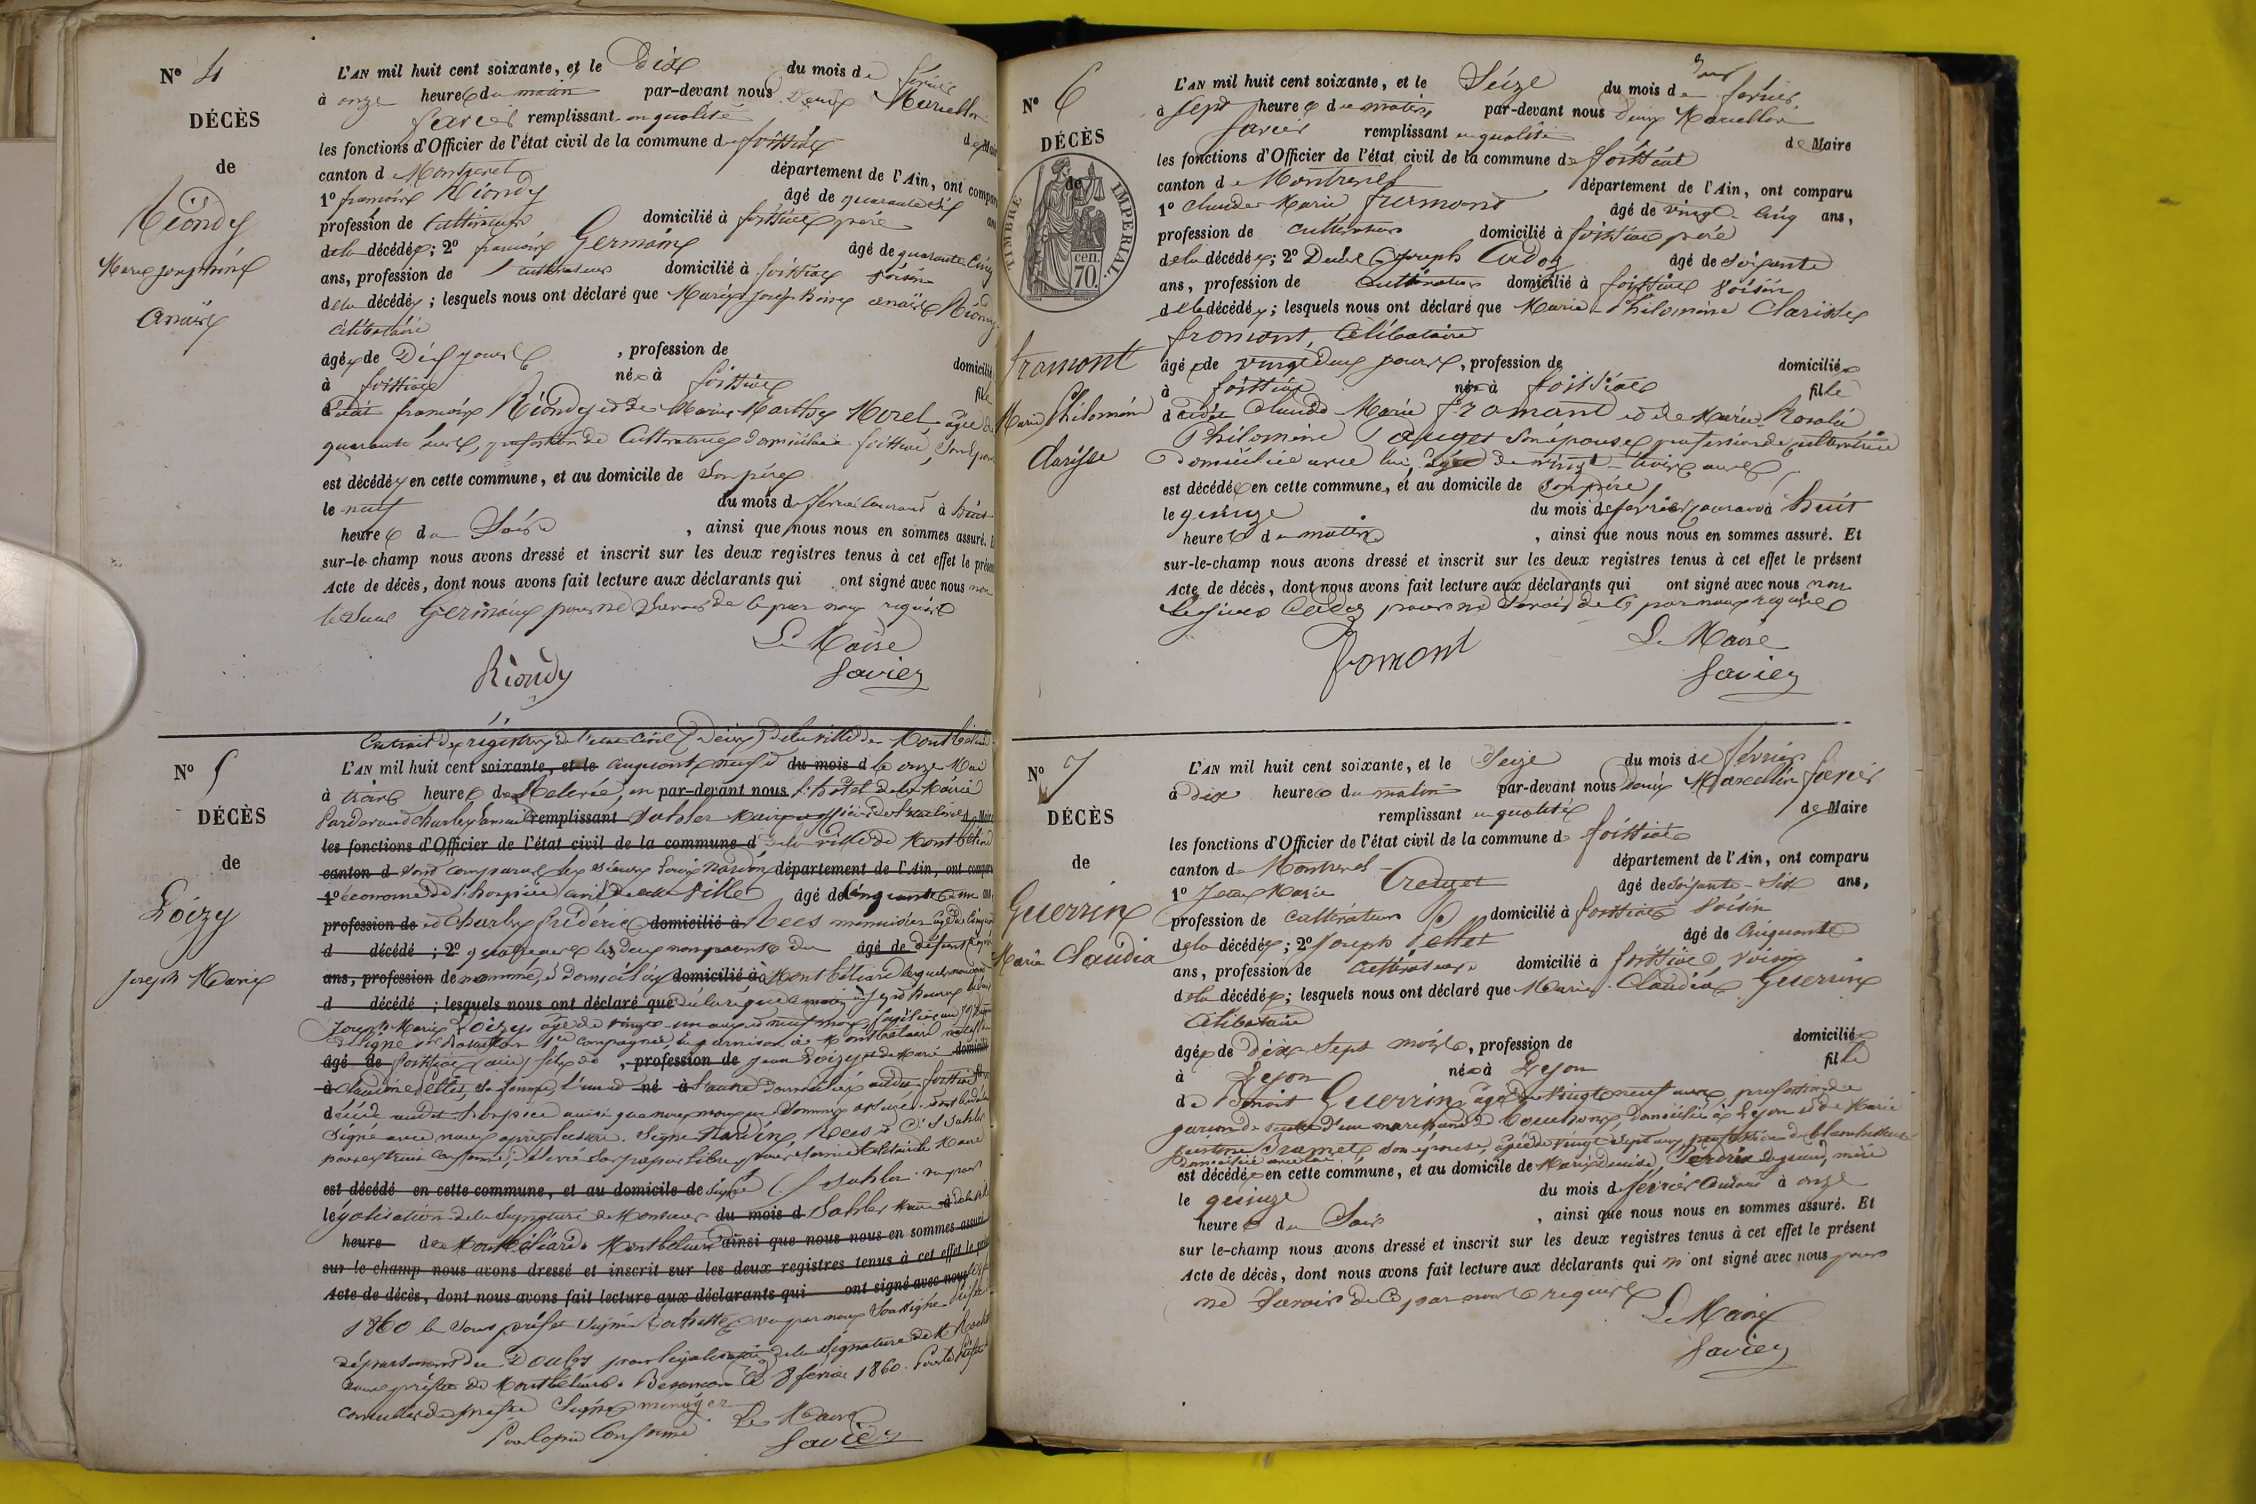 N° 4
DÉCÈS
de
Riondy
Marie Josephine
Anaïs
L'AN mil huit cent soixante, et le Dix du mois de février
à onze heures du matin par-devant nous Marcellin
Favier remplissant en qualité de Maire
les fonctions d'Officier de l'état civil de la commune de foissiat
canton de Montrevel département de l'Ain, ont comparu
1° françois Riondy âgé de quarante six ans
profession de Cultivateur domicilié à foissiat père
de la décédée; 2° françois Germain âgé de quarante cinq
ans, profession de cultivateur domicilié à foissiat voisin
de la décédée; lesquels nous ont déclaré que Marie Josephine anaïs Riondy
célibataire
âgée de Dix jours, profession de domicilié
à foissiat née à foissiat fille
dudit françois Riondy et de Marie Marthe Morel, âgée de
quarante ans, profession de Cultivatrice domiciliée foissiat, son épouse
est décédée en cette commune, et au domicile de Son père
le neuf du mois de février courant à huit
heures du Soir, ainsi que nous nous en sommes assuré. Et
sur-le-champ nous avons dressé et inscrit sur les deux registres tenus à cet effet le présent
Acte de décès, dont nous avons fait lecture aux déclarants qui ont signé avec nous non
le Sieur Germain pour ne Savoir de ce par nous requis
Le Maire
Riondy Favier
N° 5
DÉCÈS
de
Loizy
Joseph Marie
Extrait des régistres de l'état civil de la ville de Montbéliard
L'AN mil huit cent soixante, et le cinquante neuf du mois d le onze Mai
à trois heures de Relevée, en par-devant nous l'hôtel de la Mairie
Pardevant charles remplissant Sahler Maire officier de l'état civil de Maire
les fonctions d'Officier de l'état civil de la commune d de la ville de Montbéliard
canton d sont comparus les sieurs Louis Nardin département de l'Ain, ont comparu
1° économe de l'hospice civil de cette Ville âgé de Cinquante ans
profession de et Charles frédéric domicilié à Rees menuisier âgé de
d décédé; 2° les deux non parents du âgé de défunt
ans, profession de nommé, domiciliés domicilié à Montbéliard lesquels nous ont
d décédé; lesquels nous ont déclaré que déclaré que
Joseph Marie Loizy, âgé de vingt un ans et neuf mois, fusilier au
de ligne Bataillon 1re compagnie, en garnison à Montbéliard natif de
âgé de foissiat (ain) fils de, profession de Jean Loizy et de Marie domicilié
à Claudine sa femme, l'un et né à l'autre domiciliés audit foissiat
décédé audit hospice ainsi que nous nous en Sommes assuré
Signé avec nous après lecture. Signé Nardin, Rees & Sahler
pour extrait conforme, délivré sur papier libre le Maire
est décédé en cette commune, et au domicile de Signé Sahler. vu pour
légalisation de la Signature de Monsieur du mois d Sahler Maire à de la ville
heure de Montbéliard. Montbéliard ainsi que nous nous en sommes assuré
sur-le-champ nous avons dressé et inscrit sur les deux registres tenus à cet effet le présent
Acte de décès, dont nous avons fait lecture aux déclarants qui ont signé avec nous
1860 le Sous préfet Signé vu par nous Soussigné
département du Doubs pour légalisation de la Signature de M
Sous préfet de Montbéliard. Besançon le 8 février 1860. Pour le Préfet
conseiller de préfre Signé
Pour Copie Conforme Le Maire
Favier
N° 6
DÉCÈS
de
TIMBRE IMPERIAL
70 cen.
fromont
Marie Philomène
Clarisse
L'AN mil huit cent soixante, et le Seize du mois de février
à Sept heures du matin par-devant nous Marcellin
Favier remplissant en qualité de Maire
les fonctions d'Officier de l'état civil de la commune de foissiat
canton de Montrevel département de l'Ain, ont comparu
1° Claude Marie fromont âgé de vingt-cinq ans,
profession de cultivateur domicilié à foissiat père
de la décédée; 2° Joseph Cadoz âgé de soixante
ans, profession de cultivateur domicilié à foissiat voisin
de la décédée; lesquels nous ont déclaré que Marie-Philomène Clarisse
fromont, Célibataire
âgée de vingt deux jours, profession de domiciliée
à foissiat née à foissiat fille
dudit Claude Marie fromont et de Marie Rosalie
Philomène Pauget Son épouse, profession de cultivatrice
domiciliée avec lui, âgée de vingt-trois ans,
est décédée en cette commune, et au domicile de son père
le quinze du mois de février courant à huit
heures du matin, ainsi que nous nous en sommes assuré. Et
sur-le-champ nous avons dressé et inscrit sur les deux registres tenus à cet effet le présent
Acte de décès, dont nous avons fait lecture aux déclarants qui ont signé avec nous non
le sieur Cadoz pour ne Savoir de ce par nous requis
Le Maire
fromont Favier
N° 7
DÉCÈS
de
Guerrin
Marie Claudia
L'AN mil huit cent soixante, et le Seize du mois de février
à dix heures du matin par-devant nous Marcellin Favier
remplissant en qualité de Maire
les fonctions d'Officier de l'état civil de la commune de foissiat
canton de Montrevel département de l'Ain, ont comparu
1° Jean Marie âgé de soixante-six ans,
profession de cultivateur domicilié à foissiat voisin
de la décédée; 2° Joseph Pellet âgé de Cinquante
ans, profession de cultivateur domicilié à foissiat voisin
de la décédée; lesquels nous ont déclaré que Marie Claudia Guerrin
Célibataire
âgée de dix Sept mois, profession de domiciliée
à Lyon née à Lyon fille
de Benoit Guerrin, âgé de vingt neuf ans, profession de
garçon de d'un marchand de domicilié à Lyon et de Marie
Bramet son épouse, âgée de vingt Sept ans, profession de
domiciliée avec lui
est décédée en cette commune, et au domicile de Marie
le quinze du mois de février Courant à onze
heures du Soir, ainsi que nous nous en sommes assuré. Et
sur le-champ nous avons dressé et inscrit sur les deux registres tenus à cet effet le présent
Acte de décès, dont nous avons fait lecture aux déclarants qui n'ont signé avec nous pour
ne Savoir de ce par nous requis
Le Maire
Favier